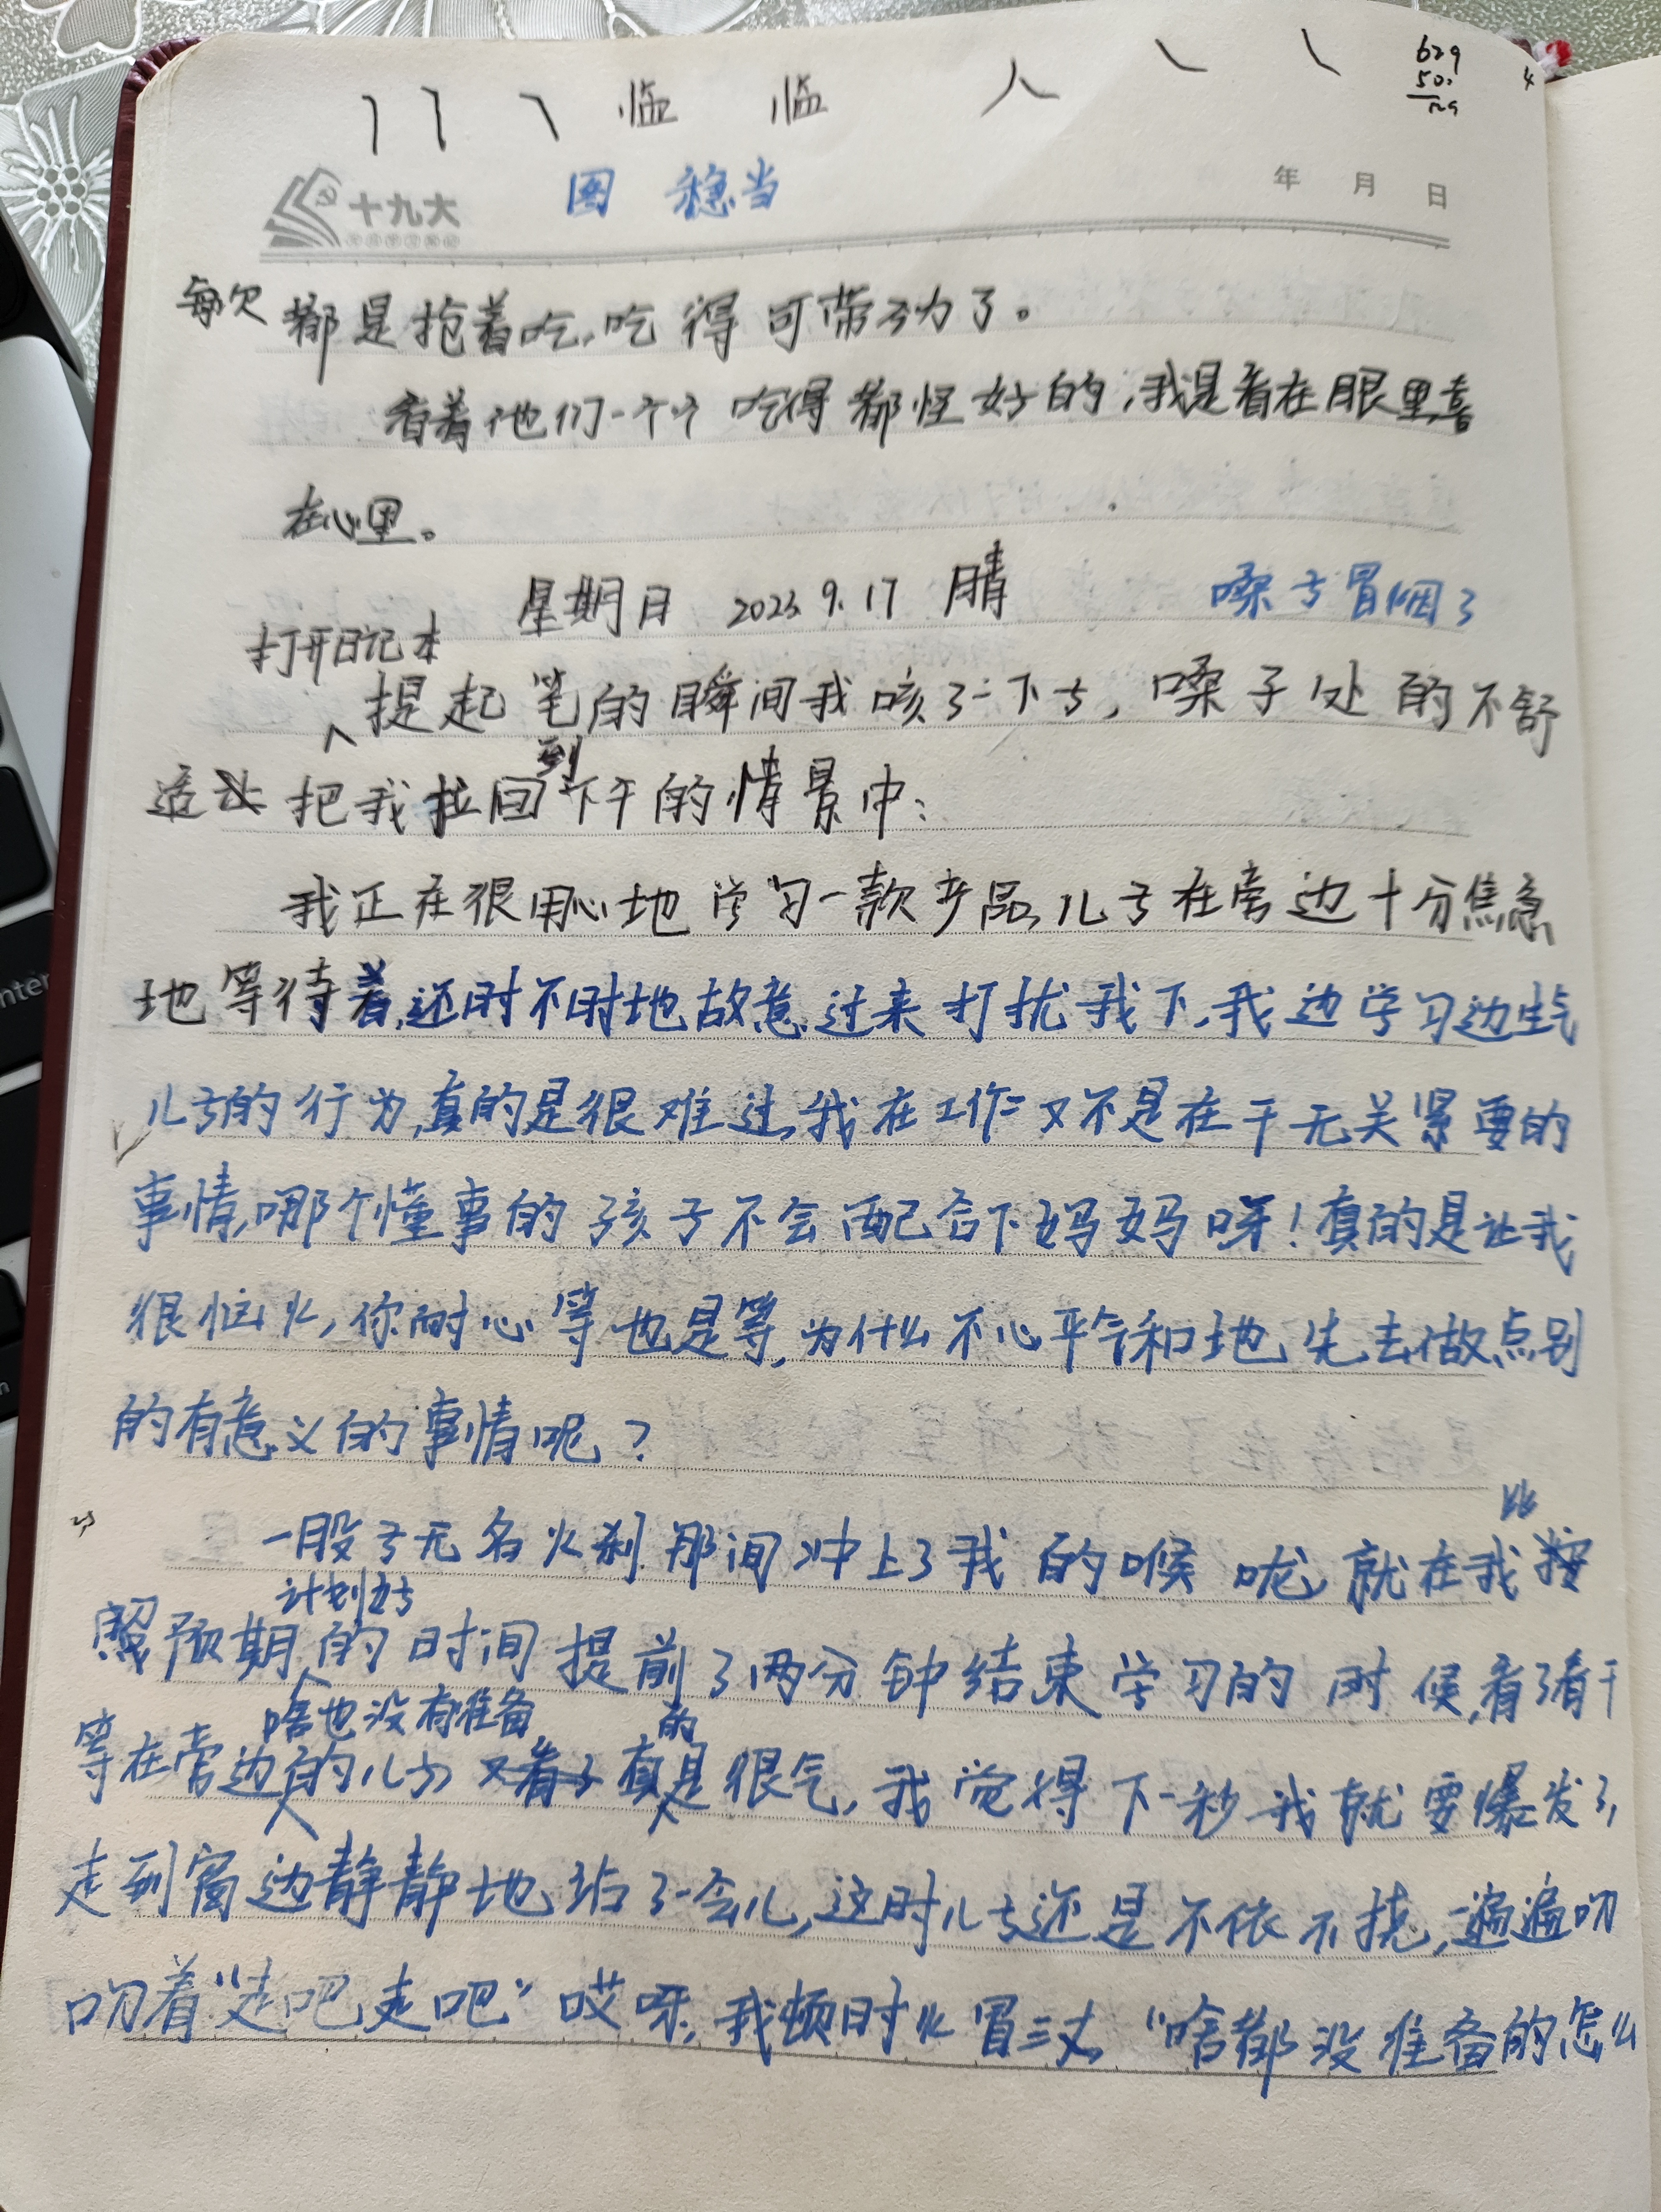 临 临 人
629
50
129
4
十九大
图 稳当
年 月 日
每次都是抢着吃,吃得可带劲了。
看着他们一个个吃得都怪好的,我是看在眼里喜
在心里。
星期日 2023.9.17 晴 嗓子冒烟了
打开日记本
提起笔的瞬间我咳了一下子,嗓子处的不舒
到
适让把我拉回下午的情景中:
我正在很用心地学习一款产品,儿子在旁边十分焦急
地等待着,还时不时地故意过来打扰我下,我边学习边生气
儿子的行为,真的是很难过,我在工作又不是在干无关紧要的
事情,哪个懂事的孩子不会配合下妈妈呀!真的是让我
很恼火,你耐心等也是等,为什么不心平气和地先去做点别
的有意义的事情呢?
比
一股子无名火刹那间冲上了我的喉咙,就在我按
计划好
照预期的时间提前了两分钟结束学习的时候,看了看干
啥也没有准备 的
等在旁边的儿子又看了真是很气,我觉得下一秒我就要爆发了,
走到窗边静静地站了一会儿,这时儿子还是不依不挠,一遍遍叨
叨着“走吧走吧”哎呀,我顿时火冒三丈,“啥都没准备的怎么